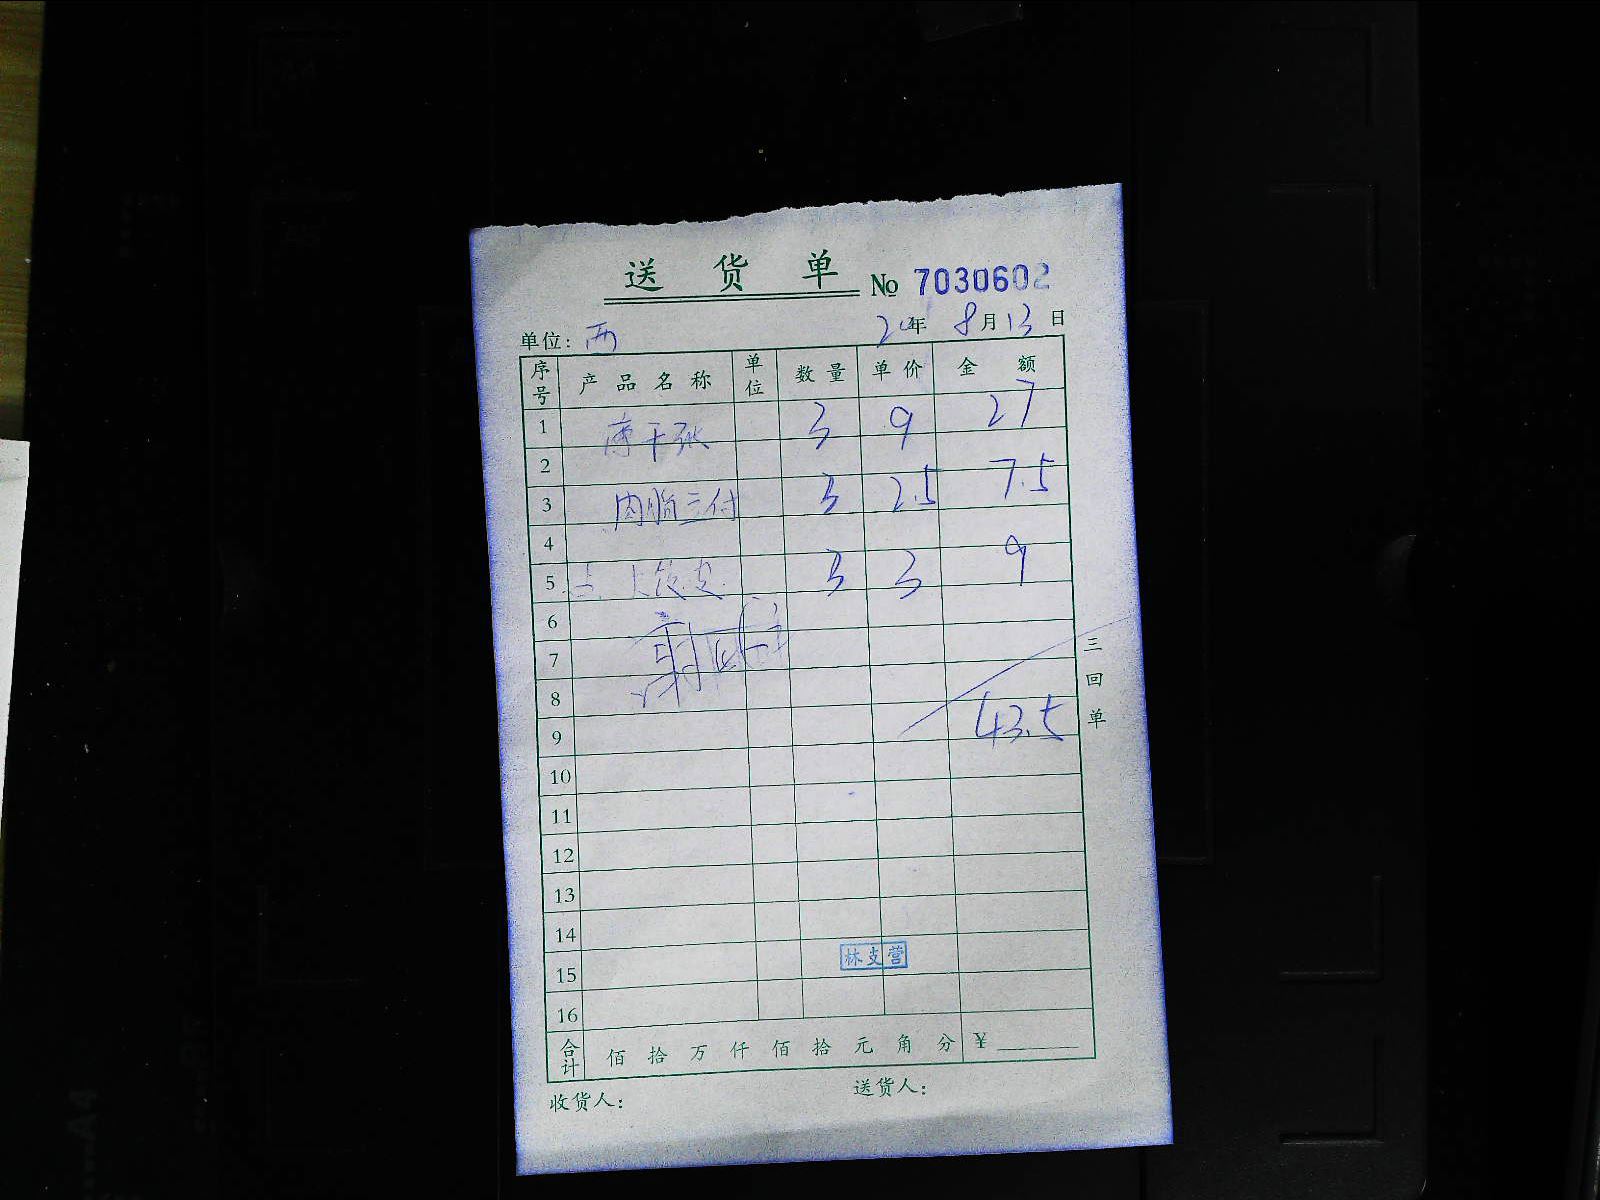 送 货 单 № 7030602
单位: 西 20年 8月13日
序号 产品名称 单位 数量 单价 金额
1 薄千张 3 9 27
2
3 内脂三付 3 2.5 7.5
4
5 皮 3 3 9
6
7
8
9 43.5
10
11
12
13
14
15 林支营
16
合计 佰 拾 万 仟 佰 拾 元 角 分 ¥
收货人: 送货人:
三回单